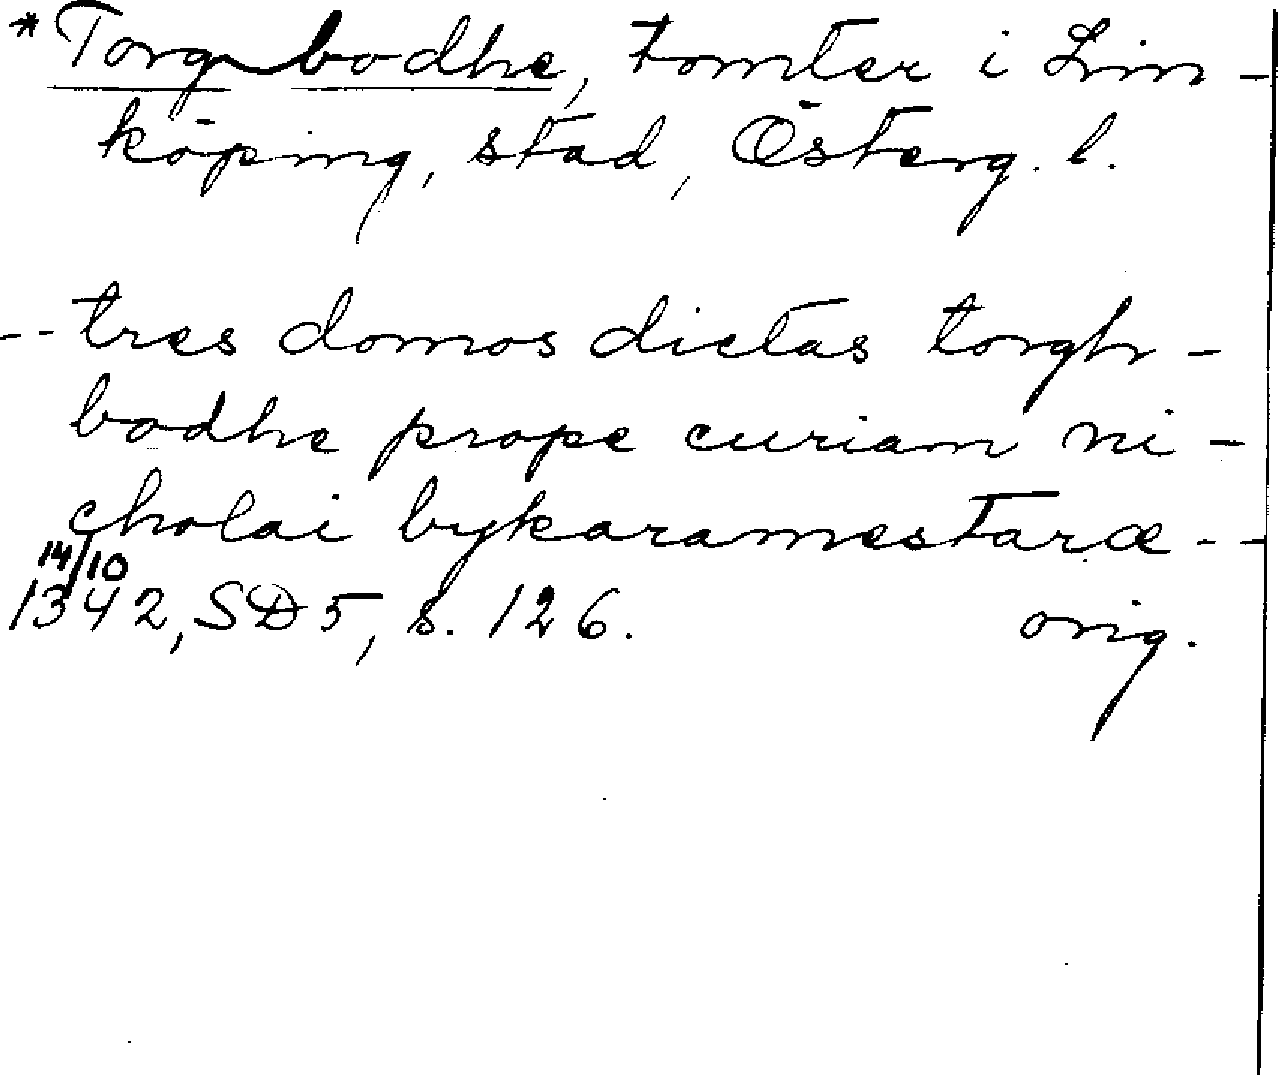 *Torg bodhe, tomter i Lin-
köping, stad, Österg. l.
-- tres domos dictas torgh-
bodhe prope curiam ni-
cholai bykaramestaræ --
14/10
1342, SD 5, s. 126. orig.